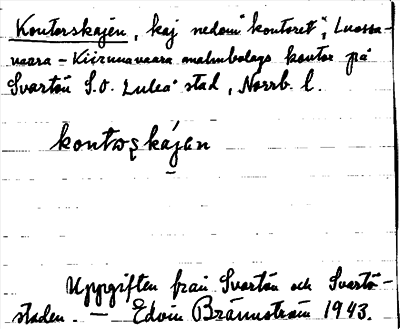 Kontorskajen, kaj nedom "kontoret", Luossa-
vaara-Kiirunavaara malmbolags kontor på
Svartön S.O. Luleå stad, Norrb. l.
kontoṣkájen
Uppgiften från Svartön och Svartö-
staden. — Edvin Brännström 1943.